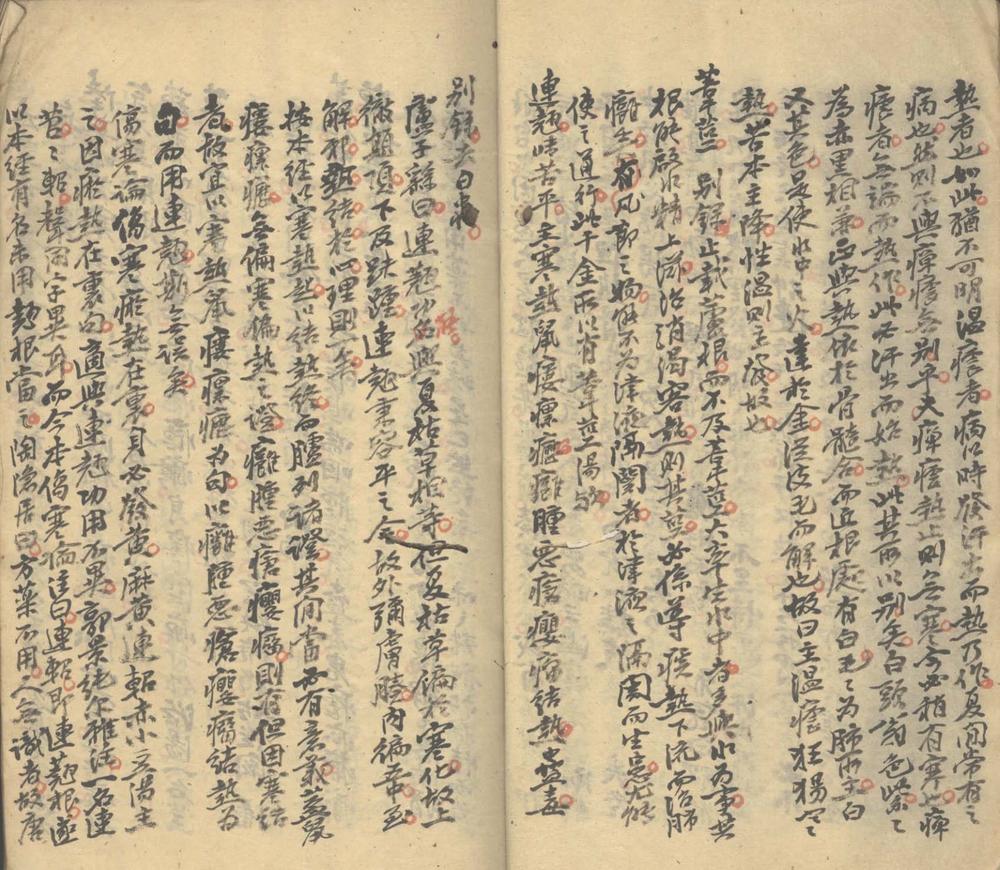 熱者也如此猶不可明溫瘧者病以時發汗出而熱乃作夏間常有之
病也然則不與癉瘧無別乎夫癉瘧熱止則無寒今必稍有寒也癉
瘧者無端而熱作此必汗出而始熱此其所以別乎白頭翁色紫之
為赤黑相兼正與熱依於骨髓合而近根處有白毛之為肺所主白
又其色是使水中之火達於金從皮毛而解也故曰主溫瘧狂猲
熱苦本主降性溫則主發故也
葶藶 別錄止載蘆根而不及葦莖大率生水中者多與水為事其
根能啟水精上滋治消渴客熱則其莖必係導熱下流而治肺
癰矣有凡節之嬌能不為津液隔閡者於津液之隔閡而生患尤能
使之通行此千金所以有葦莖湯
連翹味苦平主寒熱鼠瘻瘰癧癰腫惡瘡癭瘤結熱蠱毒
別錄去白蟲
盧子繇曰連翹治與夏枯草相等但夏枯草偏於寒化故上
徹顛頂下及跌踵連翹秉容平之金故外彌膚腠內偏五中
解邪熱結於心理則一矣
按本經以寒熱起以結熱終而臚列諸證其間當必有意義蓋鼠
瘻瘰癧無偏寒偏熱之證癰腫惡瘡癭瘤則有但因寒結
者故宜以寒熱鼠瘻瘰癧為句以癰腫惡瘡癭瘤結熱為
句而用連翹斯無誤矣
傷寒論傷寒瘀熱在裏身必發黃麻黃連軺赤小豆湯主
之因瘀熱在裏句適與連翹功用不異郭景純爾雅注一名連
苕苕軺聲同字異耳而今本傷寒論注曰連軺即連翹根遂
以本經有名未用翹根當之陶隱居曰方藥不用人無識者故唐